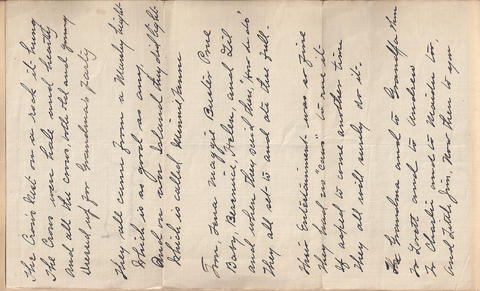 The Crow's Nest on a rock it hung
The Crows were hale and hearty
And all the crows, both old and young
Dressed up for Grandma's party
They all came from a Manly height
Which is as good as any
And on an Island they did light
Which is called
Tom, Jana, Maggie, Butler, Prue
Baby, Bernerice, Helen, and Gil
And when they said their "how-de-do"
They all set to and ate their fill.
Their Entertainment was so fine
They had no "caws" to rue it
If asked to come another time
They all will surely do it.
To Grandma and to Grandpa
To Lovett and to Andrew
To Charlie and to Maiden too,
And Little Jim, Now then to you